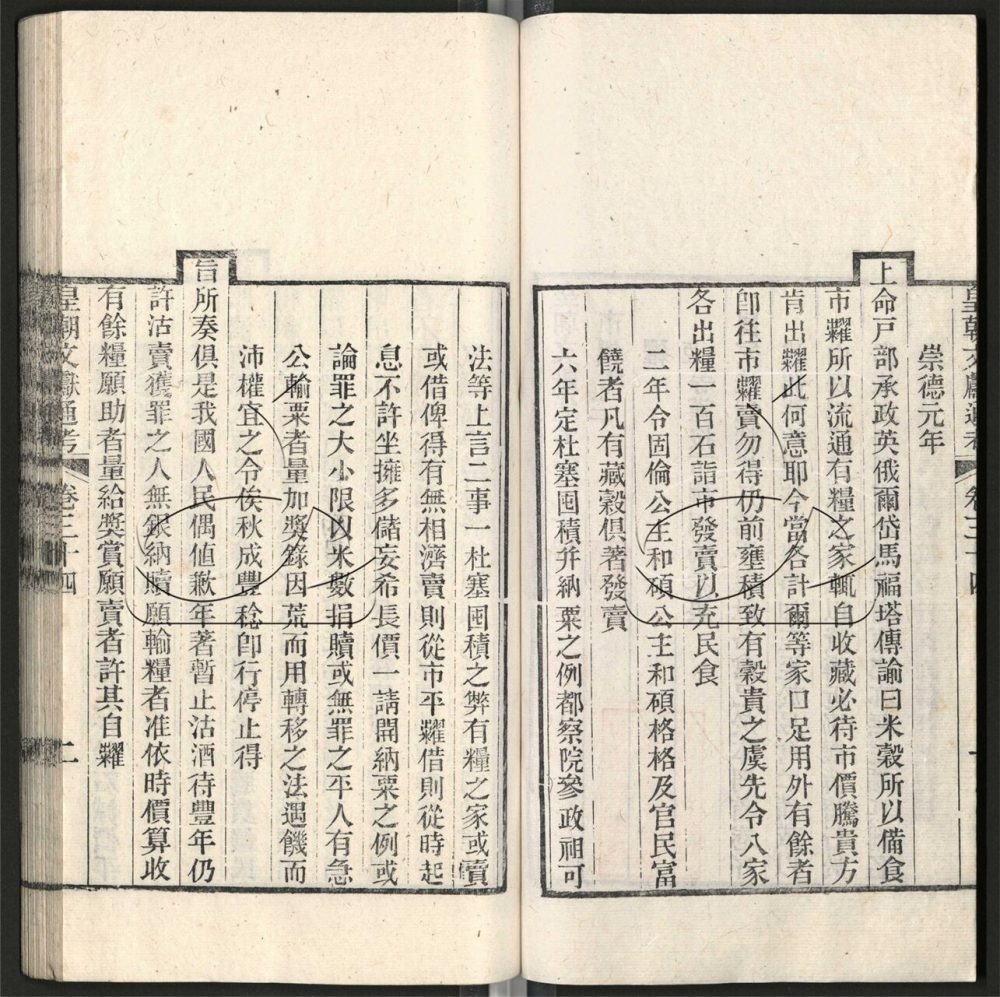 皇朝文獻通考 卷三十四
崇德元年
上命戸部承政英俄爾岱馬福塔傳諭曰米穀所以備食
市糶所以流通有糧之家輒自收藏必待市價騰貴方
肯出糶此何意耶今當各計爾等家口足用外有餘者
卽往市糶賣勿得仍前壅積致有穀貴之虞先令八家
各出糧一百石詣市發賣以充民食
二年令固倫公主和碩公主和碩格格及官民富
饒者凡有藏穀俱著發賣
六年定杜塞囤積并納粟之例都察院參政祖可
法等上言二事一杜塞囤積之弊有糧之家或賣
或借俾得有無相濟賣則從市平糶借則從時起
息不許坐擁多儲妄希長價一請開納粟之例或
論罪之大小限以米數捐贖或無罪之平人有急
公輸粟者量加獎錄因荒而用轉移之法遇饑而
沛權宜之令俟秋成豐稔卽行停止得
旨所奏俱是我國人民偶値歉年著暫止沽酒待豐年仍
許沽賣獲罪之人無銀納贖願輸糧者准依時價算收
有餘糧願助者量給獎賞願賣者許其自糶
皇朝文獻通考 卷三十四 二